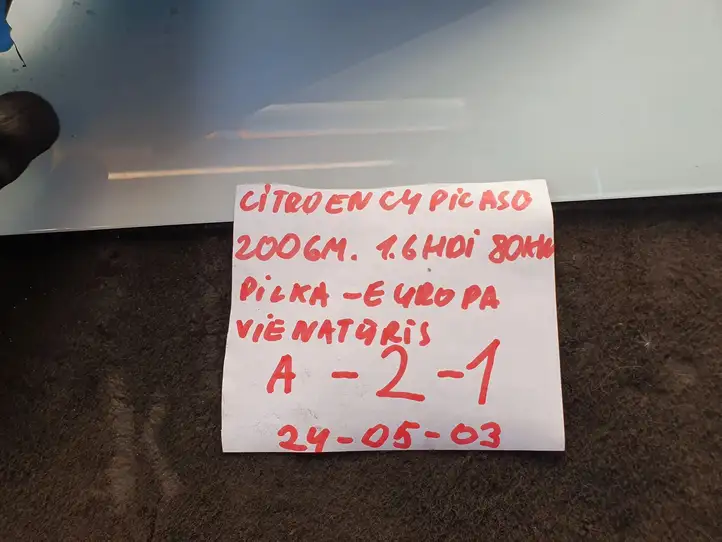 CITROEN C4 PICASO
2006M. 1.6HDI 80KW
PILKA - EUROPA
VIENATŪRIS
A - 2 - 1
24-05-03